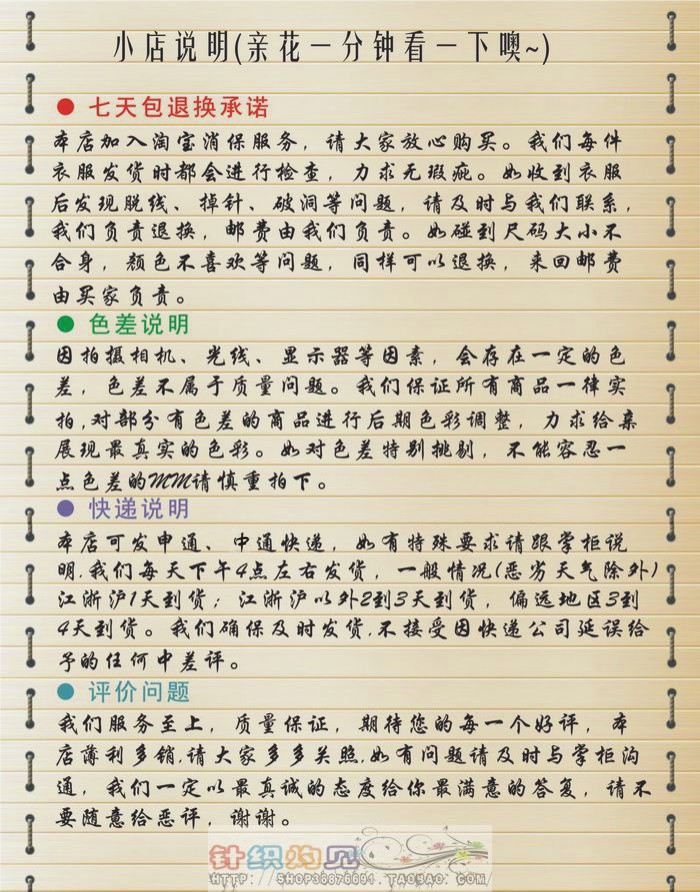 小店说明(亲花一分钟看一下噢~)
七天包退换承诺
本店加入淘宝消保服务，请大家放心购买。我们每件
衣服发货时都会进行检查，力求无瑕疵。如收到衣服
后发现脱线、掉针、破洞等问题，请及时与我们联系，
我们负责退换，邮费由我们负责。如碰到尺码大小不
合身，颜色不喜欢等问题，同样可以退换，来回邮费
由买家负责。
色差说明
因拍摄相机、光线、显示器等因素，会存在一定的色
差，色差不属于质量问题。我们保证所有商品一律实
拍,对部分有色差的商品进行后期色彩调整，力求给亲
展现最真实的色彩。如对色差特别挑剔，不能容忍一
点色差的MM请慎重拍下。
快递说明
本店可发申通、中通快递，如有特殊要求请跟掌柜说
明.我们每天下午4点左右发货，一般情况(恶劣天气除外)
江浙沪1天到货；江浙沪以外2到3天到货，偏远地区3到
4天到货。我们确保及时发货.不接受因快递公司延误给
予的任何中差评。
评价问题
我们服务至上，质量保证，期待您的每一个好评，本
店薄利多销.请大家多多关照.如有问题请及时与掌柜沟
通，我们一定以最真诚的态度给你最满意的答复，请不
要随意给恶评，谢谢。
针织灼见
HTTP://SHOP36876691.TAOBAO.COM/